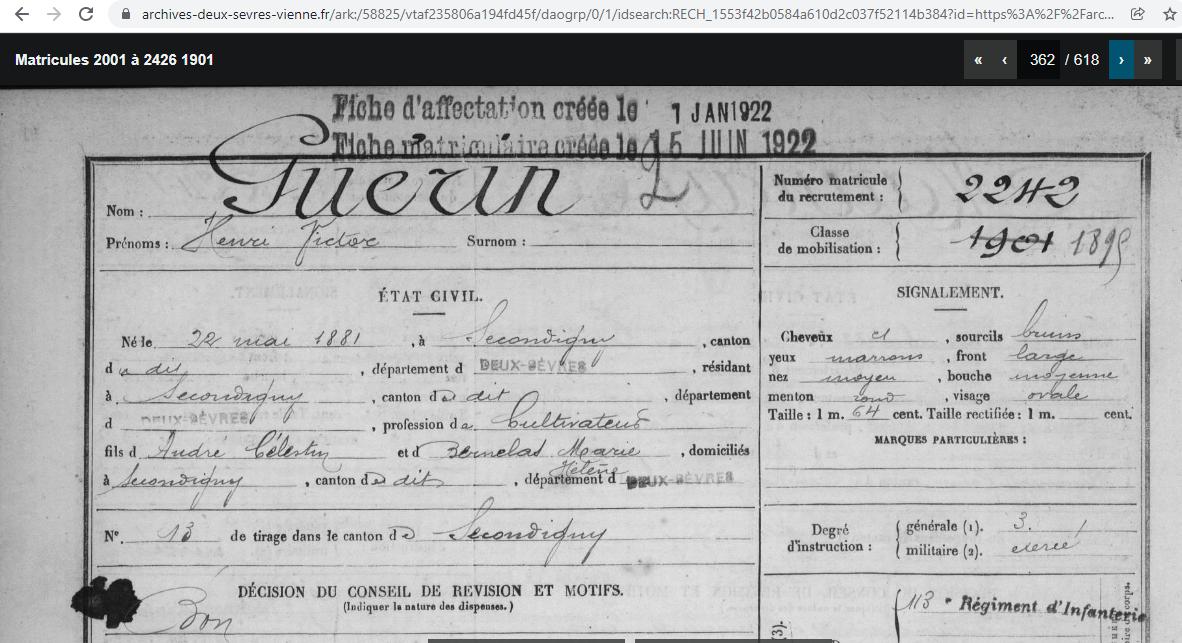 archives-deux-sevres-vienne.fr/ark:/58825/vtaf235806a194fd45f/daogrp/0/1/idsearch:RECH_1553f42b0584a610d2c037f52114b384?id=https%3A%2F%2Farc...
Matricules 2001 à 2426 1901
« ‹ 362 / 618 › »
Fiche d'affectation créée le 1 JAN 1922
Fiche matriculaire créée le 15 JUIN 1922
Nom : Guerin 2
Prénoms : Henri Victor Surnom :
Numéro matricule
du recrutement : 2242
Classe
de mobilisation : 1901 1895
ÉTAT CIVIL.
Né le 22 mai 1881, à Secondigny, canton
d u dit, département d DEUX-SÈVRES, résidant
à Secondigny, canton du dit, département
d DEUX-SÈVRES, profession de Cultivateur
fils d André Célestin et d Bernelas Marie
Hélène, domiciliés
à Secondigny, canton du dit, département d DEUX-SÈVRES
N° 13 de tirage dans le canton de Secondigny
DÉCISION DU CONSEIL DE REVISION ET MOTIFS.
(Indiquer la nature des dispenses.)
Bon
SIGNALEMENT.
Cheveux et, sourcils bruns
yeux marrons, front large
nez moyen, bouche moyenne
menton rond, visage ovale
Taille : 1 m. 64 cent. Taille rectifiée : 1 m. cent.
MARQUES PARTICULIÈRES :
Degré
d'instruction : générale (1). 3.
militaire (2). exercé
113e Régiment d'Infanterie
(3).
corps.